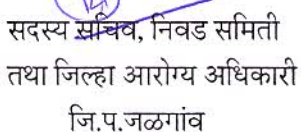 सदस्य सचिव, निवड समिती
तथा जिल्हा आरोग्य अधिकारी
जि.प.जळगांव